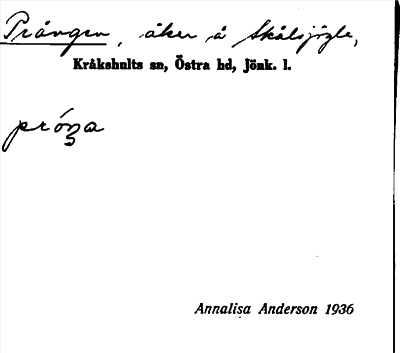 Prången, åker å Skälsjögle,
Kråkshults sn, Östra hd, Jönk. l.
próŋa
Annalisa Anderson 1936